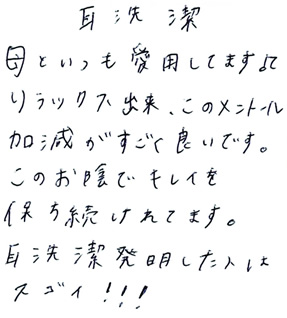 耳洗潔
母といつも愛用してます♪で
リラックス出来、このメントール
加減がすごく良いです。
このお陰でキレイを
保ち続けれてます。
耳洗潔発明した人は
スゴイ!!!